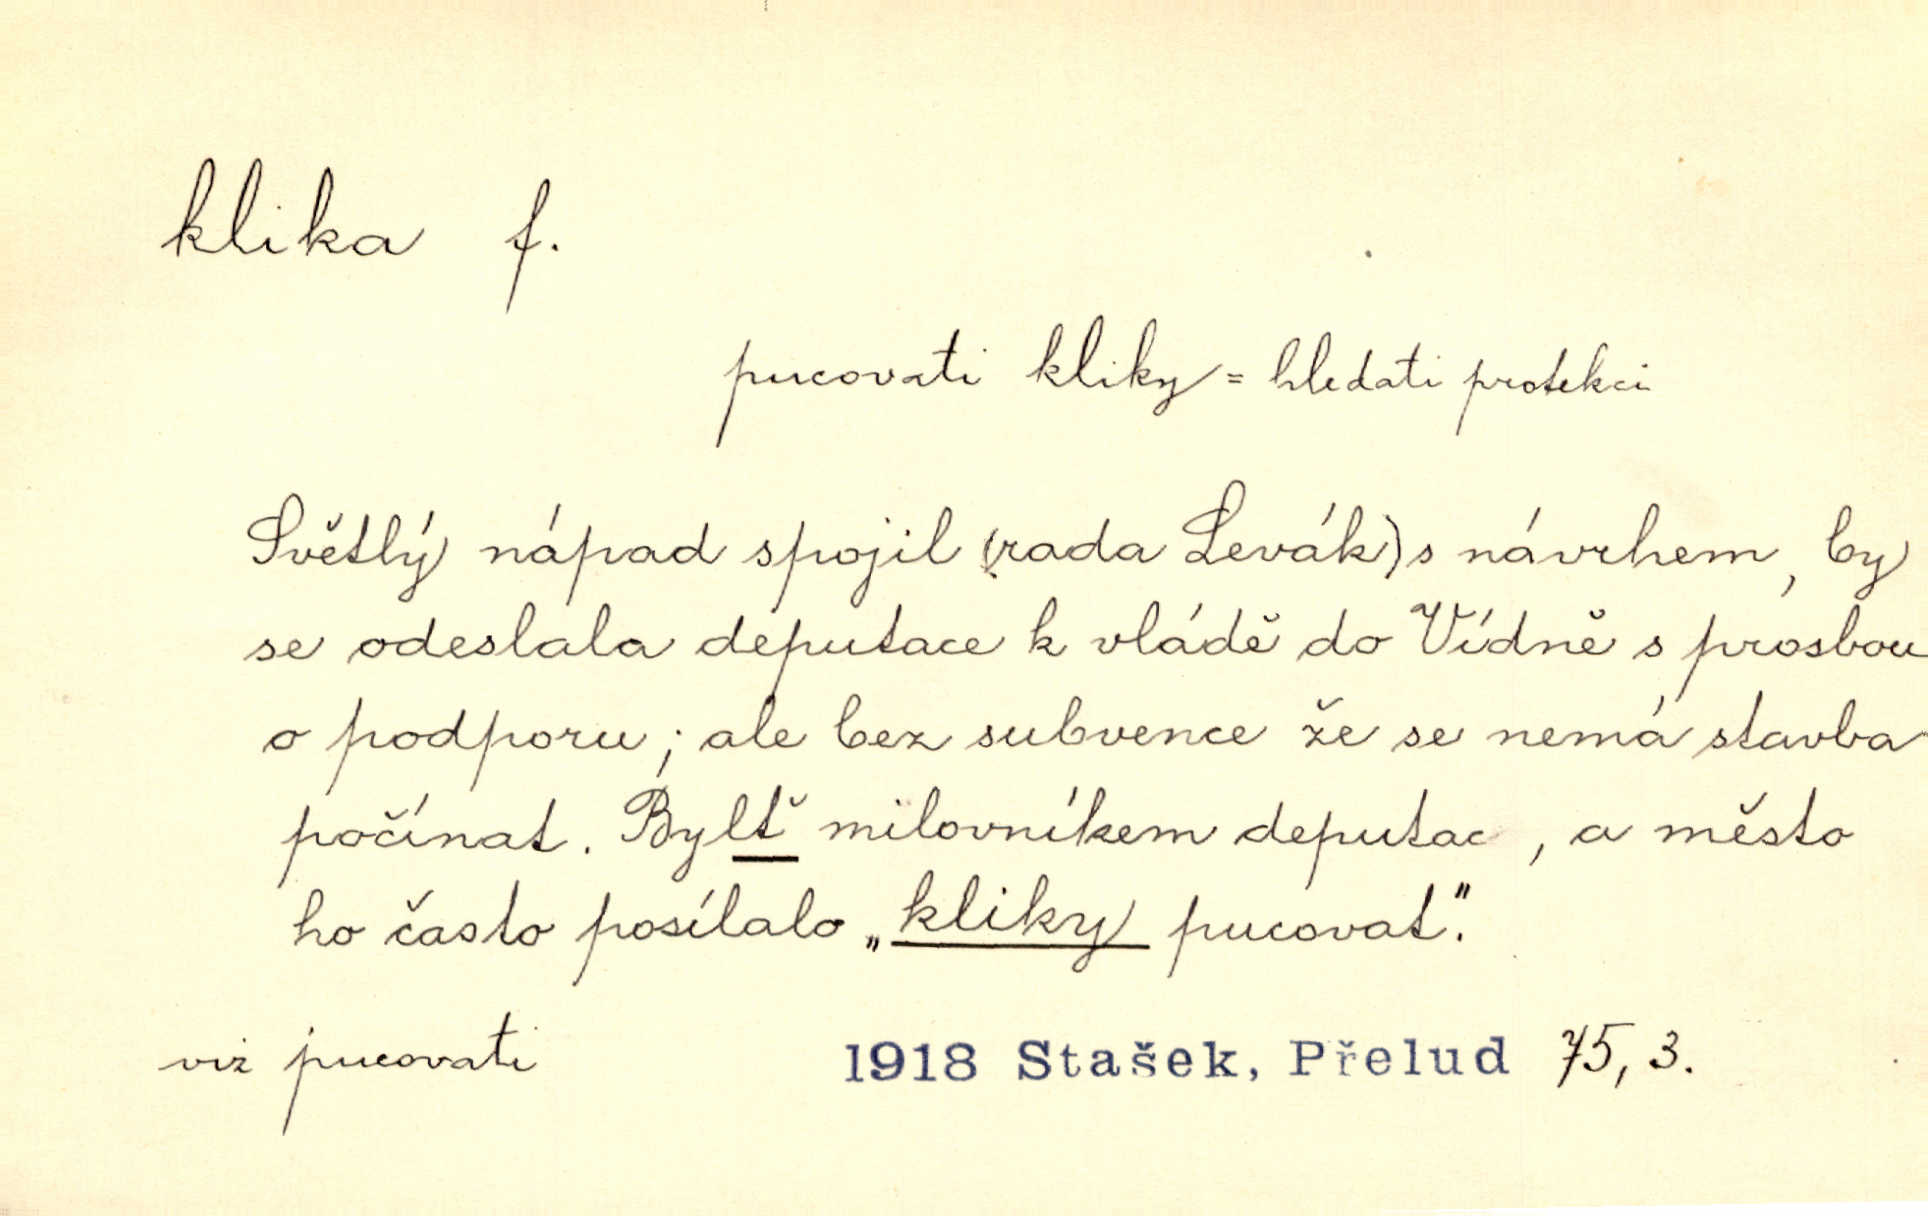 klika f.
pucovati kliky = hledati protekci
Světlý nápad spojil (rada Levák) s návrhem, by
se odeslala deputace k vládě do Vídně s prosbou
o podporu; ale bez subvence že se nemá stavba
počínat. Bylť milovníkem deputac, a město
ho často posílalo „kliky pucovat".
viz pucovati 1918 Stašek, Přelud 75, 3.